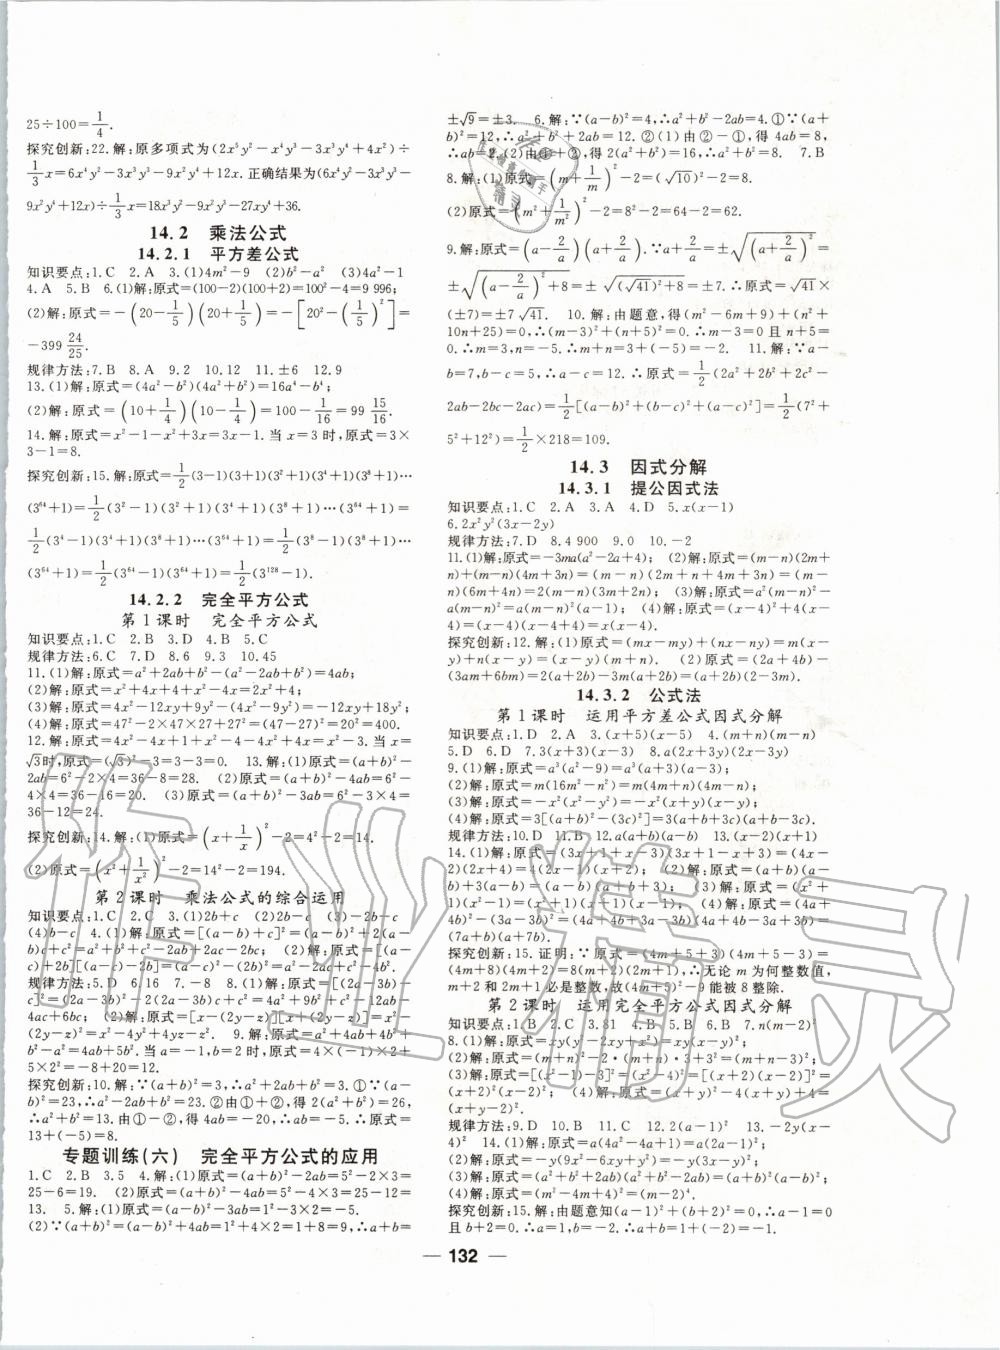 25÷100=1/4.
探究创新:22.解:原多项式为(2x⁵y²-x⁴y³-3x³y⁴+4x²)÷
1/3x=6x⁴y²-3x³y³-9x²y⁴+12x.正确结果为(6x⁴y²-3x³y³-
9x²y⁴+12x)÷1/3x=18x³y²-9x²y³-27xy⁴+36.
14.2 乘法公式
14.2.1 平方差公式
知识要点:1.C 2.A 3.(1)4m²-9 (2)b²-a² (3)4a²-1
4.A 5.B 6.(1)解:原式=(100-2)(100+2)=100²-4=9 996;
(2)解:原式=-(20-1/5)(20+1/5)=-[20²-(1/5)²]=
-399 24/25.
规律方法:7.B 8.A 9.2 10.12 11.±6 12.9
13.(1)解:原式=(4a²-b²)(4a²+b²)=16a⁴-b⁴;
(2)解:原式=(10+1/4)(10-1/4)=100-1/16=99 15/16.
14.解:原式=x²-1-x²+3x=3x-1.当x=3时,原式=3×
3-1=8.
探究创新:15.解:原式=1/2(3-1)(3+1)(3²+1)(3⁴+1)(3⁸+1)…
(3⁶⁴+1)=1/2(3²-1)(3²+1)(3⁴+1)(3⁸+1)…(3⁶⁴+1)=
1/2(3⁴-1)(3⁴+1)(3⁸+1)…(3⁶⁴+1)=1/2(3⁸-1)(3⁸+1)…
(3⁶⁴+1)=1/2(3⁶⁴-1)(3⁶⁴+1)=1/2(3¹²⁸-1).
14.2.2 完全平方公式
第1课时 完全平方公式
知识要点:1.C 2.B 3.B 4.B 5.C
规律方法:6.C 7.D 8.6 9.3 10.45
11.(1)解:原式=a²+2ab+b²-(a²-2ab+b²)=4ab;
(2)解:原式=x²+4x+4+x²-4x=2x²+4;
(3)解:原式=4x²-12xy+9y²-(4x²-9y²)=-12xy+18y²;
(4)解:原式=47²-2×47×27+27²=(47-27)²=20²=400.
12.解:原式=4x²-4x+1+x²-4-4x²+4x=x²-3.当x=
√3时,原式=(√3)²-3=3-3=0. 13.解:(1)原式=(a+b)²-
2ab=6²-2×4=36-8=28. (2)原式=(a+b)²-4ab=6²-
4×4=36-16=20. (3)原式=(a+b)²-3ab=6²-3×4=
36-12=24.
探究创新:14.解:(1)原式=(x+1/x)²-2=4²-2=14.
(2)原式=(x²+1/x²)²-2=14²-2=194.
第2课时 乘法公式的综合运用
知识要点:1.C 2.C 3.(1)2b+c (2)2b-c (3)-2b-c
(4)b-c 4.(1)解:原式=[(a-b)+c]²=(a-b)²+2(a-
b)c+c²=a²+b²+c²-2ab+2ac-2bc; (2)解:原式=[(a-
c)+2b][(a-c)-2b]=(a-c)²-(2b)²=a²-2ac+c²-4b².
规律方法:5.D 6.16 7.-8 8.(1)解:原式=[(2a-3b)-
c]²=(2a-3b)²-2(2a-3b)c+c²=4a²+9b²+c²-12ab-
4ac+6bc; (2)解:原式=[x-(2y-z)][x+(2y-z)]=x²-
(2y-z)²=x²-4y²+4yz-z². 9.解:原式=a²+4ab+4b²+
b²-a²=4ab+5b².当a=-1,b=2时,原式=4×(-1)×2+
5×2²=-8+20=12.
探究创新:10.解:∵(a+b)²=3,∴a²+2ab+b²=3.①∵(a-
b)²=23,∴a²-2ab+b²=23.②由①+②,得2(a²+b²)=26,
∴a²+b²=13.由①-②,得4ab=-20,∴ab=-5,∴原式=
13+(-5)=8.
专题训练(六) 完全平方公式的应用
1.C 2.B 3.5 4.解:(1)原式=(a+b)²-2ab=5²-2×3=
25-6=19. (2)原式=(a+b)²-4ab=5²-4×3=25-12=
13. 5.解:(1)原式=(a-b)²-3ab=1²-3×2=-5.
(2)∵(a+b)²=(a-b)²+4ab=1²+4×2=1+8=9,∴a+b=
±√9=±3. 6.解:∵(a-b)²=4,∴a²+b²-2ab=4.①∵(a+
b)²=12,∴a²+b²+2ab=12.②(1)由②-①,得4ab=8,
∴ab=2.(2)由①+②,得2(a²+b²)=16,∴a²+b²=8. 7.B
8.解:(1)原式=(m+1/m)²-2=(√10)²-2=8.
(2)原式=(m²+1/m²)²-2=8²-2=64-2=62.
9.解:原式=(a-2/a)(a+2/a).∵a+2/a=±√(a+2/a)²=
±√(a-2/a)²+8=±√(√41)²+8=±7.∴原式=√41×
(±7)=±7√41. 10.解:由题意,得(m²-6m+9)+(n²+
10n+25)=0,∴(m-3)²+(n+5)²=0.∴m-3=0且n+5=
0.∴m=3,n=-5.∴m+n=3+(-5)=-2. 11.解:∵a-
b=7,b-c=5,∴a-c=12.∴原式=1/2(2a²+2b²+2c²-
2ab-2bc-2ac)=1/2[(a-b)²+(b-c)²+(a-c)²]=1/2(7²+
5²+12²)=1/2×218=109.
14.3 因式分解
14.3.1 提公因式法
知识要点:1.C 2.A 3.A 4.D 5.x(x-1)
6.2x²y²(3x-2y)
规律方法:7.D 8.4 900 9.0 10.-2
11.(1)解:原式=-3ma(a²-2a+4); (2)解:原式=(m-n)(2m+
n)+(m-n)(4m+3n)=(m-n)(2m+n+4m+3n)=(m-
n)(6m+4n)=2(m-n)(3m+2n); (3)解:原式=a²(m-n)-
a(m-n)²=a(m-n)²(a-1); (4)解:原式=(x-4)²+4(x-
4)=(x-4)(x-4+4)=x(x-4).
探究创新:12.解:(1)原式=(mx-my)+(nx-ny)=m(x-
y)+n(x-y)=(x-y)(m+n). (2)原式=(2a+4b)-
(3am+6bm)=2(a+2b)-3m(a+2b)=(a+2b)(2-3m).
14.3.2 公式法
第1课时 运用平方差公式因式分解
知识要点:1.D 2.A 3.(x+5)(x-5) 4.(m+n)(m-n)
5.D 6.D 7.3(x+3)(x-3) 8.2(xy+a)(xy-a)
9.(1)解:原式=a³(a²-9)=a³(a+3)(a-3);
(2)解:原式=m(16m²-n²)=m(4m+n)(4m-n);
(3)解:原式=x²(x²-y²)=x²(x+y)(x-y);
(4)解:原式=3[(a+b)²-(3c)²]=3(a+b+3c)(a+b-3c).
规律方法:10.D 11.B 12.a(a+b)(a-b) 13.(x-2)(x+1)
14.(1)解:原式=(3x+1+x-3)(3x+1-x+3)=(4x-
2)(2x+4)=4(2x-1)(x+2); (2)解:原式=
(3)解:原式=
(4)解:原式=[2(2a+
b)]²-[3(a-2b)]²=(4a+4b+3a-6b)(4a+4b-3a+6b)=
(7a+
探究创新:15.证明:∵(4m+5)²-9=(4m+5+3)(4m+5-3)=
(4m+8)(4m+2)=8(m+2)(2m+1),∴无论m为何整数值,
m+2和2m+1必是整数,故(4m+5)²-9能被8整除.
第2课时 运用完全平方公式因式分解
知识要点:1.B 2.C 3.81 4.B 5.B 6.B 7.n(m-2)²
8.(1)解:原式=xy(y²-2xy+x²)=xy(x-y)²;
(2)解:原式=(m²+n)²-2·(m²+n)·3+3²=(m²+n-3)²;
(3)解:原式=[(x²-1)-3]²=(x²-4)²=[(x+2)(x-2)]²=
(x+2)²(x-2)²; (4)解:原式=(x+y)²-4(x+y)+4=
(x+y-2)².
规律方法:9.D 10.B 11.C 12.2(a-1)² 13.-2y(x-
4)² 14.(1)解:原式=a(4a²-4a+1)=a(2a-1)²;
(2)解:原式=-y(9x²-6xy+y²)=-y(3x-y)²;
(3)解:原式=(a²+b²+2ab)(a²+b²-2ab)=(a+b)²(a-b)²;
(4)解:原式=(m²-4m+4)²=(m-2)⁴.
探究创新:15.解:由题意知(a-1)²+(b+2)²=0,∴a-1=0
且b+2=0.∴a=1,b=-2,∴a+b=1-2=-1.
— 132 —
作业精灵